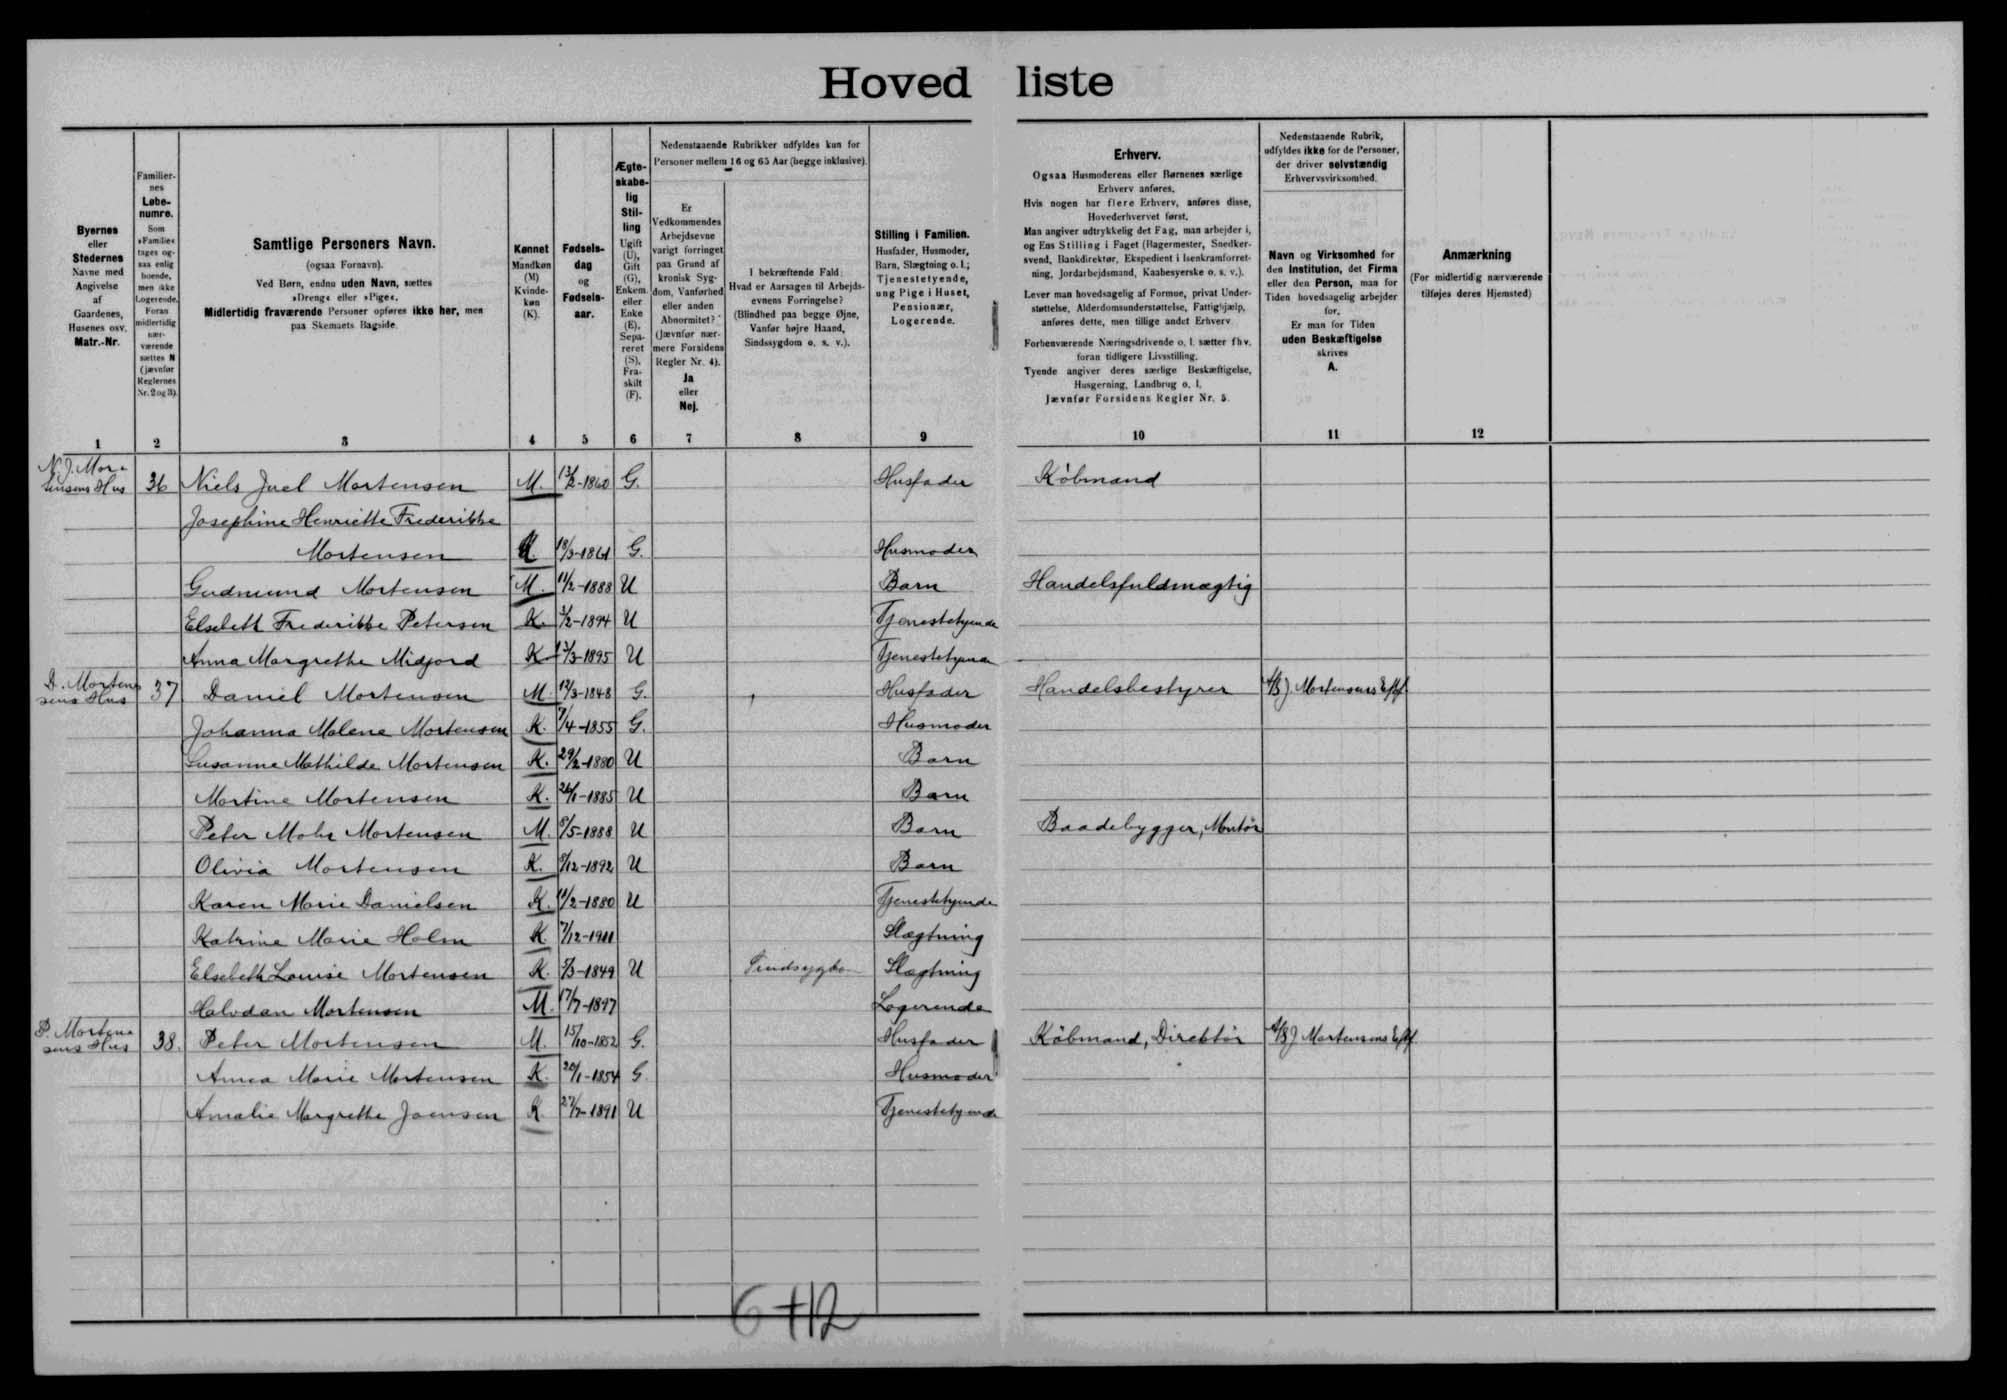 Hoved liste
Byernes
eller
Stedernes
Navne med
Angivelse
af
Gaardenes,
Husenes osv.
Matr.-Nr.
Familier-
nes
Løbe-
numre.
Som
»Familie«
tages og-
saa enlig
boende,
men ikke
Logerende.
Foran
midlertidig
nær-
værende
sættes N
(jævnfør
Reglernes
Nr. 2 og 3).
Samtlige Personers Navn.
(ogsaa Fornavn).
Ved Børn, endnu uden Navn, sættes
»Dreng« eller »Pige«.
Midlertidig fraværende Personer opføres ikke her, men
paa Skemaets Bagside.
Kønnet
Mandkøn
(M)
Kvinde-
køn
(K).
Fødsels-
dag
og
Fødsels-
aar.
Ægte-
skabe-
lig
Stil-
ling
Ugift
(U),
Gift
(G),
Enkem.
eller
Enke
(E),
Sepa-
reret
(S),
Fra-
skilt
(F).
Nedenstaaende Rubrikker udfyldes kun for
Personer mellem 16 og 65 Aar (begge inklusive).
Er
Vedkommendes
Arbejdsevne
varigt forringet
paa Grund af
kronisk Syg-
dom, Vanførhed
eller anden
Abnormitet?
(Jævnfør nær-
mere Forsidens
Regler Nr. 4).
Ja
eller
Nej.
I bekræftende Fald:
Hvad er Aarsagen til Arbejds-
evnens Forringelse?
(Blindhed paa begge Øjne,
Vanfør højre Haand,
Sindssygdom o. s. v.).
Stilling i Familien.
Husfader, Husmoder,
Barn, Slægtning o. l.;
Tjenestetyende,
ung Pige i Huset,
Pensionær,
Logerende.
Erhverv.
Ogsaa Husmoderens eller Børnenes særlige
Erhverv anføres.
Hvis nogen har flere Erhverv, anføres disse,
Hovederhvervet først.
Man angiver udtrykkelig det Fag, man arbejder i,
og Ens Stilling i Faget (Bagermester, Snedker-
svend, Bankdirektør, Ekspedient i Isenkramforret-
ning, Jordarbejdsmand, Kaabesyerske o. s. v.).
Lever man hovedsagelig af Formue, privat Under-
støttelse, Alderdomsunderstøttelse, Fattighjælp,
anføres dette, men tillige andet Erhverv
Forhenværende Næringsdrivende o. l. sætter fhv.
foran tidligere Livsstilling.
Tyende angiver deres særlige Beskæftigelse,
Husgerning, Landbrug o. l.
Jævnfør Forsidens Regler Nr. 5.
Nedenstaaende Rubrik,
udfyldes ikke for de Personer,
der driver selvstændig
Erhvervsvirksomhed.
Navn og Virksomhed for
den Institution, det Firma
eller den Person, man for
Tiden hovedsagelig arbejder
for.
Er man for Tiden
uden Beskæftigelse
skrives
A.
Anmærkning
(For midlertidig nærværende
tilføjes deres Hjemsted)
1 2 3 4 5 6 7 8 9 10 11 12
N. J. Mor-
tensens Hus 36 Niels Juel Mortensen M. 13/2-1860 G. Husfader Købmand
Josephine Henriette Frederikke
Mortensen K. 18/3-1861 G. Husmoder
Gudmund Mortensen M. 11/2-1888 U Barn Handelsfuldmægtig
Elsebeth Frederikke Petersen K. 3/2-1894 U Tjenestetyende
Anna Margrethe Midjord K 13/3-1895 U Tjenestetyende
D. Morten-
sens Hus 37 Daniel Mortensen M. 12/3-1848 G. Husfader Handelsbestyrer A/S J. Mortensens Eftf.
Johanna Malene Mortensen K. 7/4-1855 G. Husmoder
Susanne Mathilde Mortensen K. 29/2-1880 U Barn
Martine Mortensen K. 26/1-1885 U Barn
Peter Mohr Mortensen M. 8/5-1888 U Barn Baadebygger, Montør
Olivia Mortensen K. 9/12-1892 U Barn
Karen Marie Danielsen K. 11/2-1880 U Tjenestetyende
Katrine Marie Holm K 7/12-1911 Slægtning
Elsebeth Louise Mortensen K. 7/3-1849 U Slægtning
Halvdan Mortensen M. 17/7-1897 Logerende
P. Morten-
sens Hus 38. Peter Mortensen M. 15/10-1852 G. Husfader Købmand, Direktør A/S J Mortensens Eftf.
Anna Marie Mortensen K. 20/1-1854 G. Husmoder
Amalie Margrethe Joensen K 27/7-1891 U Tjenestetyende
6+12